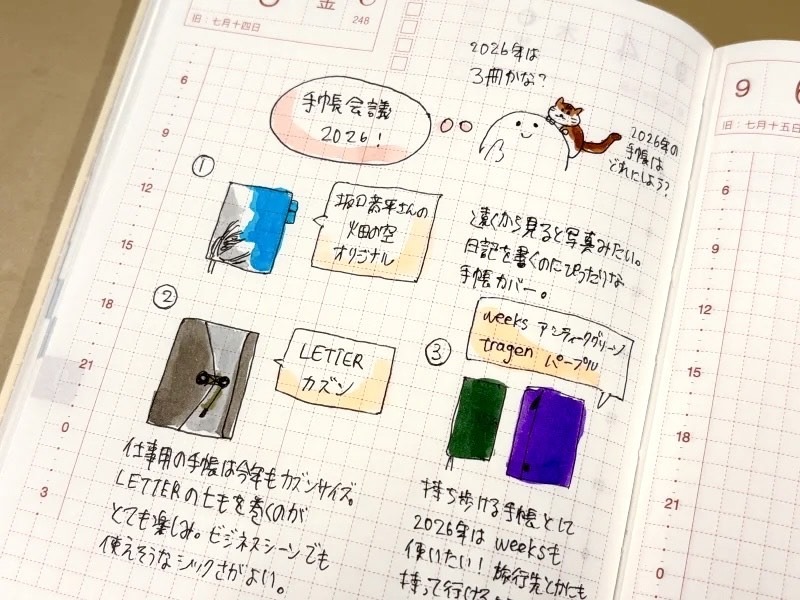 金
248
旧：七月十四日
6
9
12
15
18
21
0
3
2026年は
3冊かな？
手帳会議
2026！
2026年の
手帳は
どれにしよう？
①
坂口恭平さんの
畑の空
オリジナル
遠くから見ると写真みたい。
日記を書くのにぴったりな
手帳カバー。
②
LETTER
カズン
仕事用の手帳は今年もカズンサイズ。
LETTERのヒモを巻くのが
とても楽しみ。ビジネスシーンでも
使えそうなシックさがよい。
③
weeks アンティークグリーン
tragen パープル
持ち歩ける手帳として
2026年は weeksも
使いたい！旅行先とかにも
持って行ける
9
旧：七月十五日
6
9
12
15
18
21
0